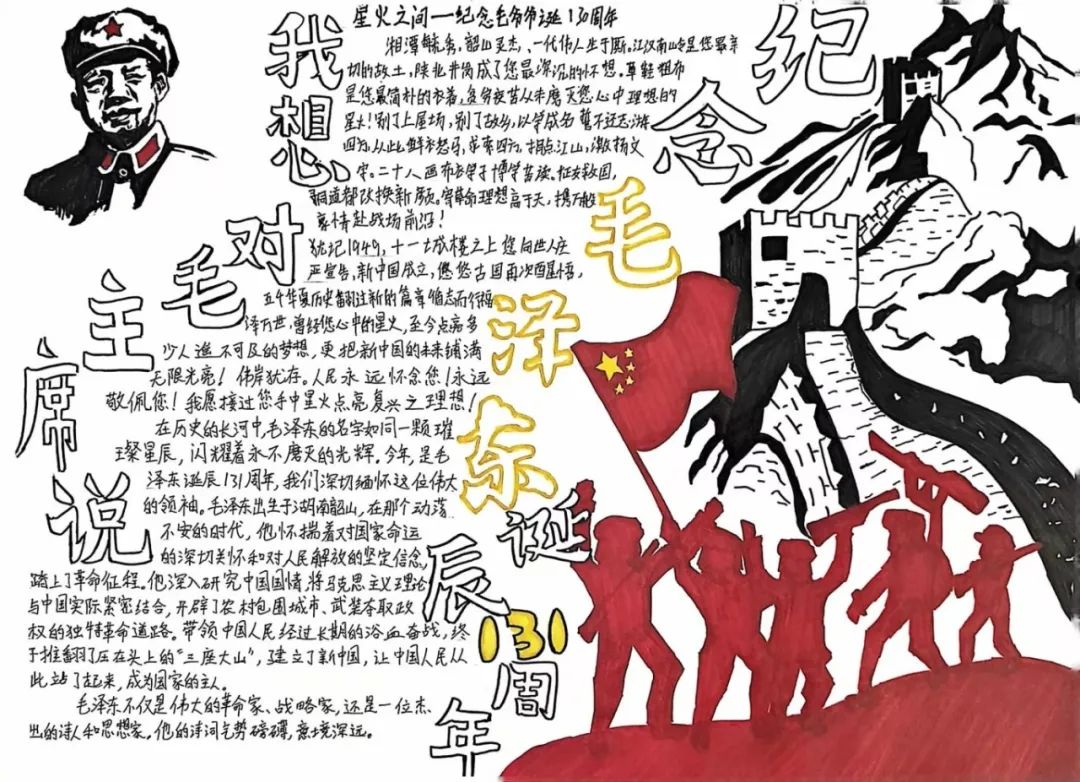 我想对毛主席说
纪念毛泽东诞辰131周年
星火之间一纪念毛爷爷诞130周年
湘潭毓秀,韶山灵杰,一代伟人生于斯。江汉南山是您最亲
切的故土,陕北井岗成了您最深沉的怀想。草鞋粗布
是您最简朴的衣着,贫穷疲苦从未磨灭您心中理想的
星火!别了上屋场,别了故乡,以学成名誓不还志。
四方,从此鲜衣怒马,求索四方,指点江山,激扬文
字。二十八画
布衣学子博学苦读。
改换新颜。
革命理想高于天,携万般
豪情赴战场前沿!
犹记1949,十一城楼之上您向世人庄
严宣告,新中国成立,
您古国再次醒悟,
五千华夏历史翻注新的篇章
泽万世,曾经您心中的星火,至今点亮多
少人遥不可及的梦想,更把新中国的未来铺满
无限光亮!伟岸犹存。人民永远怀念您!永远
敬佩您!我愿接过您手中星火点亮复兴之理想!
在历史的长河中,毛泽东的名字如同一颗璀
璨星辰,闪耀着永不磨灭的光辉。今年,是毛
泽东诞辰131周年,我们深切缅怀这位伟大
的领袖。毛泽东出生于湖南韶山,在那个动荡
不安的时代,他怀揣着对国家命运
的深切关怀和对人民解放的坚定信念,
踏上了革命征程。他深入研究中国国情,将马克思主义理论
与中国实际紧密结合,开辟了农村包围城市、武装夺取政
权的独特革命道路。带领中国人民经过长期的浴血奋战,终
于推翻了压在头上的“三座大山”,建立了新中国,让中国人民从
此站了起来,成为国家的主人。
毛泽东不仅是伟大的革命家、战略家,还是一位杰
出的诗人和思想家。他的诗词气势磅礴,意境深远。